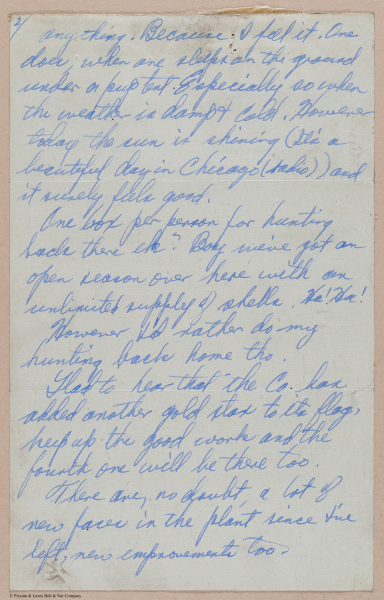 2/
anything. Because I feel it. One
does, when one sleeps on the ground
under a pup tent. Especially so when
the weather is damp & cold. However
today the sun is shining (It's a
beautiful day in Chicago (radio)) and
it surely feels good.
One box per person for hunting
back there eh? Boy we've got an
open season over here with an
unlimited supply of shells. Ha! Ha!
However I'd rather do my
hunting back home tho.
Glad to hear that the Co. has
added another gold star to its flag,
keep up the good work and the
fourth one will be there too.
There are, no doubt, a lot of
new faces in the plant since I've
left, new improvements too.
© Pheoll & Lewis Bolt & Nut Company